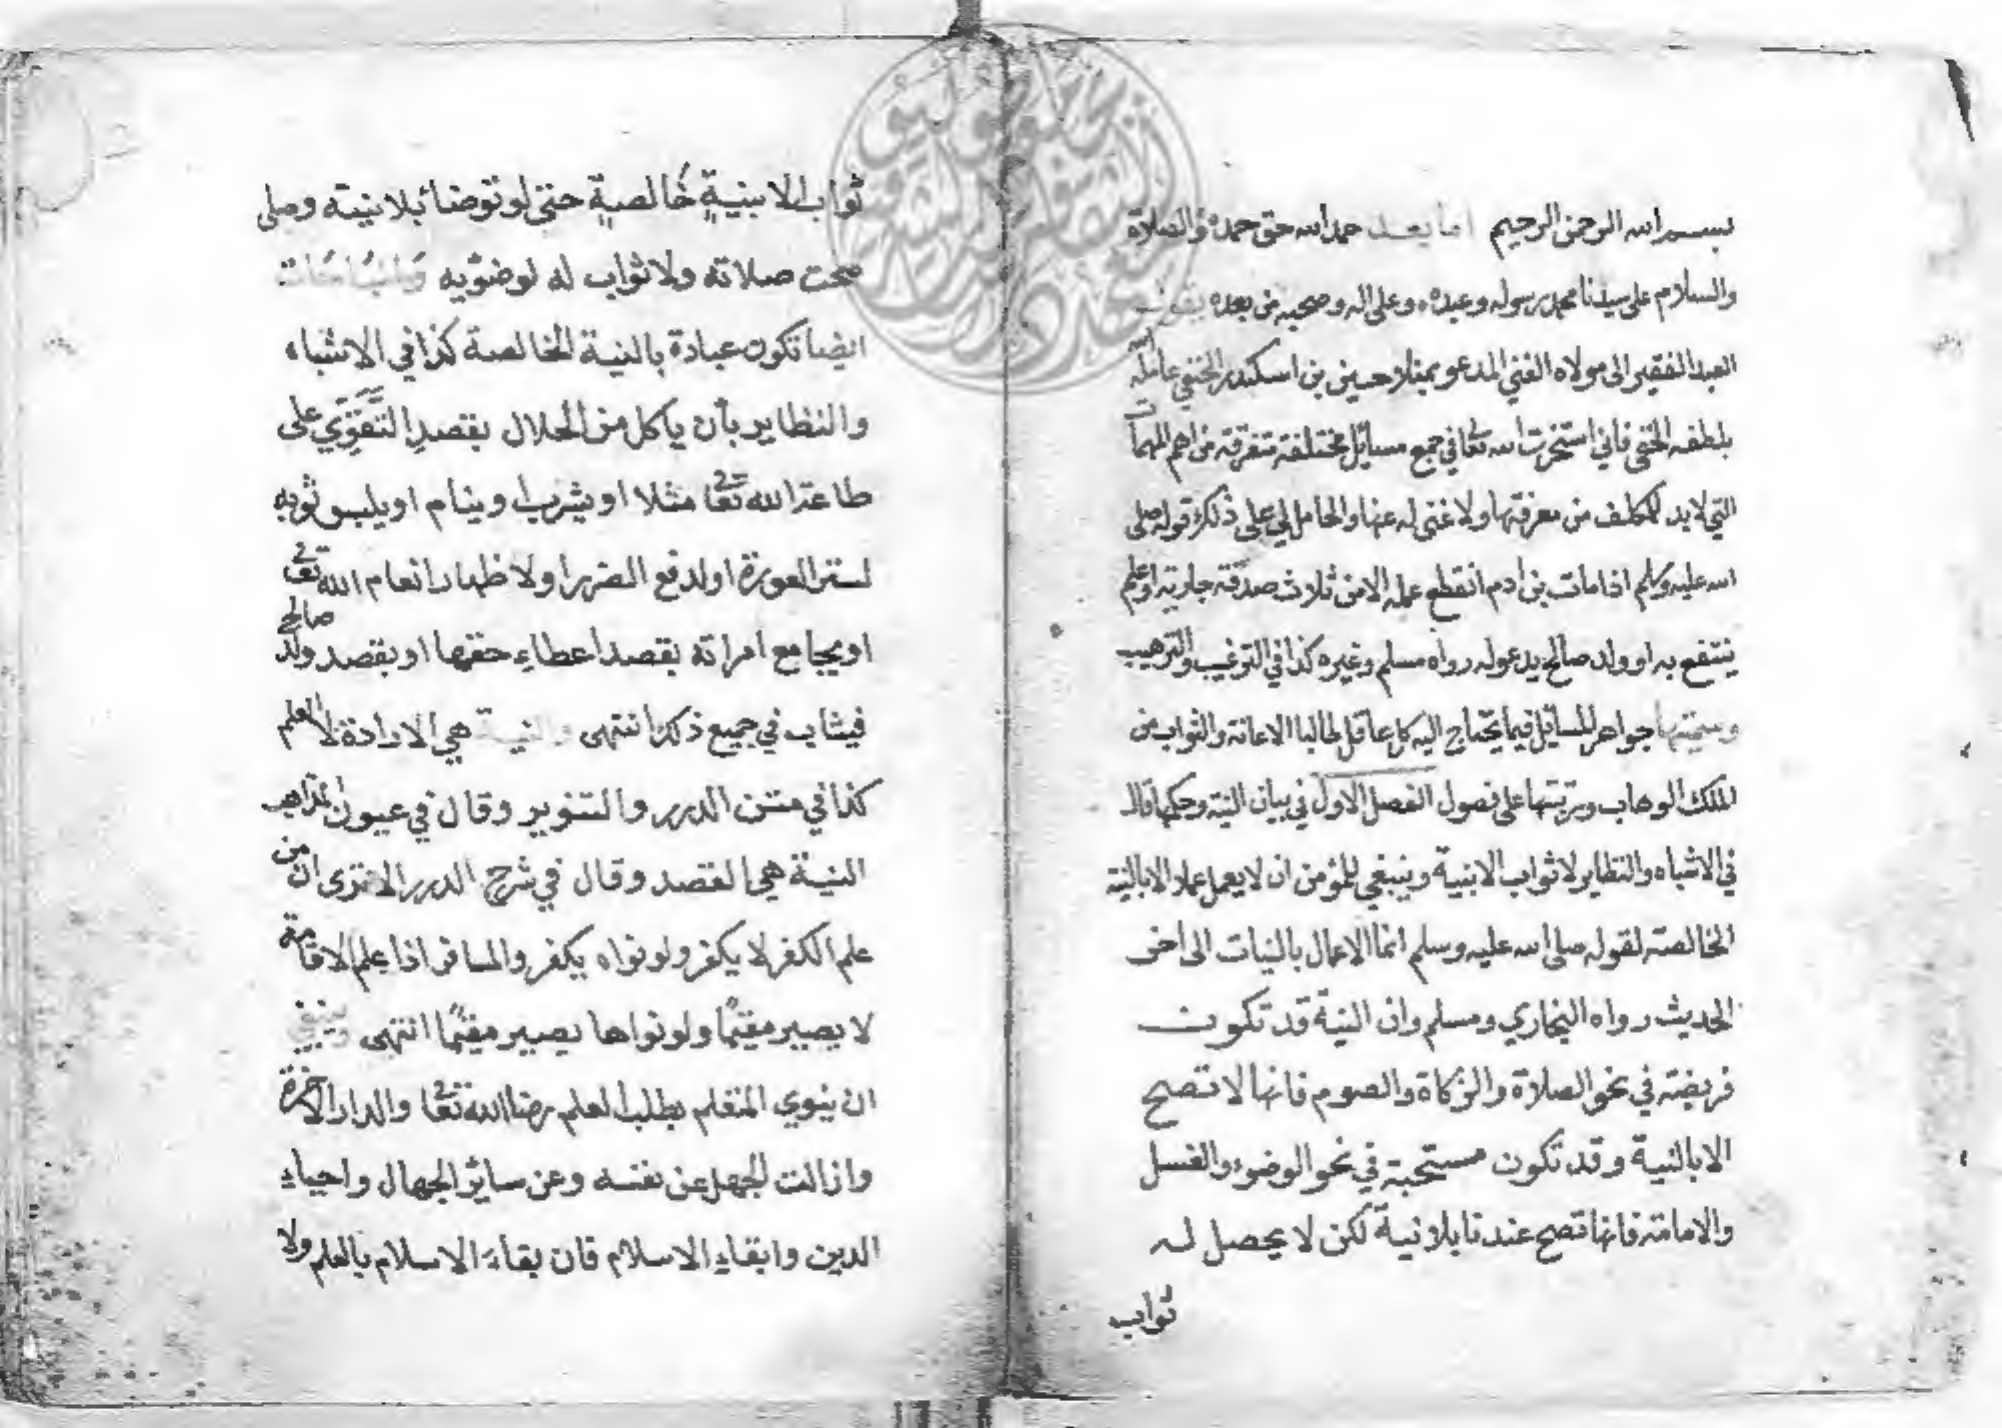 بسم الله الرحمن الرحيم اما بعد حمد الله حق حمده والصلاة
والسلام على سيدنا محمد رسوله وعبده وعلى اله وصحبه من بعده يقول
العبد الفقير الى مولاه الغني المدعو بمنلا حسين بن اسكندر الحنفي عامله الله
بلطفه الخفي فاني استخرت الله تعا في جمع مسائل مختلفة متفرقة من اهم المهمات
التي لابد للمكلف من معرفتها ولا غنى له عنها والحامل لي على ذلك قوله صلى
الله عليه وسلم اذا مات بن ادم انقطع عمله الا من ثلاث صدقة جارية او علم
ينتفع به او ولد صالح يدعوله رواه مسلم وغيره كذا في الترغيب والترهيب
وسميتها جواهر المسائل فيما يحتاج اليه كل عاقل طالبا الاعانة والثواب من
الملك الوهاب ورتبتها على فصول الفصل الاول في بيان النية وحكمها قال
في الاشباه والنظاير لا ثواب الا بنية وينبغي للمؤمن ان لا يعمل عملا الا بالنية
الخالصة لقوله صلى الله عليه وسلم انما الاعمال بالنيات الى اخر
الحديث رواه البخاري ومسلم وان النية قد تكون
فريضة في نحو الصلاة والزكاة والصوم فانها لا تصح
الا بالنية وقد تكون مستحبة في نحو الوضوء والغسل
والامامة فانها تصح عندنا بلا نية لكن لا يحصل له
ثواب
ثواب الا بنيةٍ خالصةٍ حتى لو توضأ بلا نية وصلى
صحت صلاته ولا ثواب له لوضوئه والمباحات
ايضا تكون عبادة بالنية الخالصة كذا في الاشباه
والنظاير بأن ياكل من الحلال بقصدِ التَّقَوِّي على
طاعة الله تعا مثلا او يشرب او ينام او يلبس ثوبه
لستر العورة او لدفع الضرر او لاظهار انعام الله تعا
او يجامع امراته بقصد اعطاء حقها او بقصد ولد صالح
فيثاب في جميع ذلك انتهى والنية هي الارادة لا العلم
كذا في متن الدرر والتنوير وقال في عيون المذاهب
النية هي القصد وقال في شرح الدرر الا ترى ان من
علم الكفر لا يكفر ولو نواه يكفر والمسافر اذا علم الاقامة
لا يصير مقيمًا ولو نواها يصير مقيمًا انتهى وينبغي
ان ينوي المتعلم بطلب العلم رضا الله تعا والدار الاخرة
وازالت الجهل عن نفسه وعن سائر الجهال واحياء
الدين وابقاء الاسلام فان بقاء الاسلام بالعلم ولا